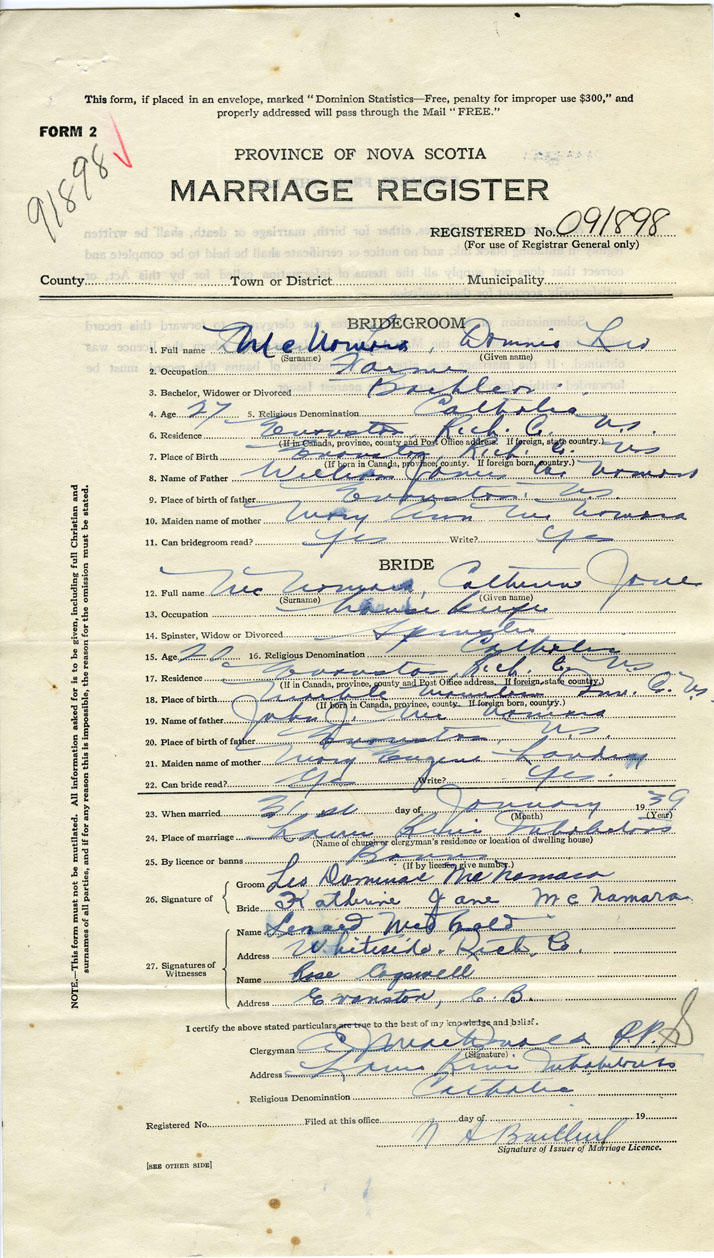 This form, if placed in an envelope, marked "Dominion Statistics—Free, penalty for improper use $300," and
properly addressed will pass through the Mail "FREE."
FORM 2
91898
PROVINCE OF NOVA SCOTIA
MARRIAGE REGISTER
REGISTERED No. 091898
(For use of Registrar General only)
County Town or District Municipality
BRIDEGROOM
1. Full name McNamara, Dominic Leo
(Surname) (Given name)
2. Occupation Farmer
3. Bachelor, Widower or Divorced Bachelor
4. Age 27 5. Religious Denomination Catholic
6. Residence Evanston, Rich. C. N.S.
(If in Canada, province, county and Post Office address. If foreign, state country.)
7. Place of Birth Evanston, Rich. C. N.S
(If born in Canada, province, county. If foreign born, country.)
8. Name of Father William James McNamara
9. Place of birth of father Evanston, N.S.
10. Maiden name of mother Mary Ann McNamara
11. Can bridegroom read? Yes Write? Yes
BRIDE
12. Full name McNamara, Catherine Jane
(Surname) (Given name)
13. Occupation House keeper
14. Spinster, Widow or Divorced Spinster
15. Age 20 16. Religious Denomination Catholic
17. Residence Evanston, Rich. C. N.S
(If in Canada, province, county and Post Office address. If foreign, state country.)
18. Place of birth Mountain Inv. C. N.S.
(If born in Canada, province, county. If foreign born, country.)
19. Name of father John J. McNamara
20. Place of birth of father Evanston, N.S.
21. Maiden name of mother Mary Landry
22. Can bride read? Yes Write? Yes.
23. When married 31st day of January 1939
(Month) (Year)
24. Place of marriage Lower River Inhabitants
(Name of church or clergyman's residence or location of dwelling house)
25. By licence or banns Banns
(If by licence, give number.)
26. Signature of
Groom Leo Dominic McNamara
Bride Katherine Jane McNamara
27. Signatures of Witnesses
Name
Address Whiteside, Rich. Co.
Name Rose Cogswell
Address Evanston, C.B.
I certify the above stated particulars are true to the best of my knowledge and belief.
Clergyman MacDonald P.P.
(Signature)
Address Lower River Inhabitants
Religious Denomination Catholic
Registered No. Filed at this office day of 19
Signature of Issuer of Marriage Licence.
[SEE OTHER SIDE]
NOTE.—This form must not be mutilated. All information asked for is to be given, including full Christian and
surnames of all parties, and if for any reason this is impossible, the reason for the omission must be stated.